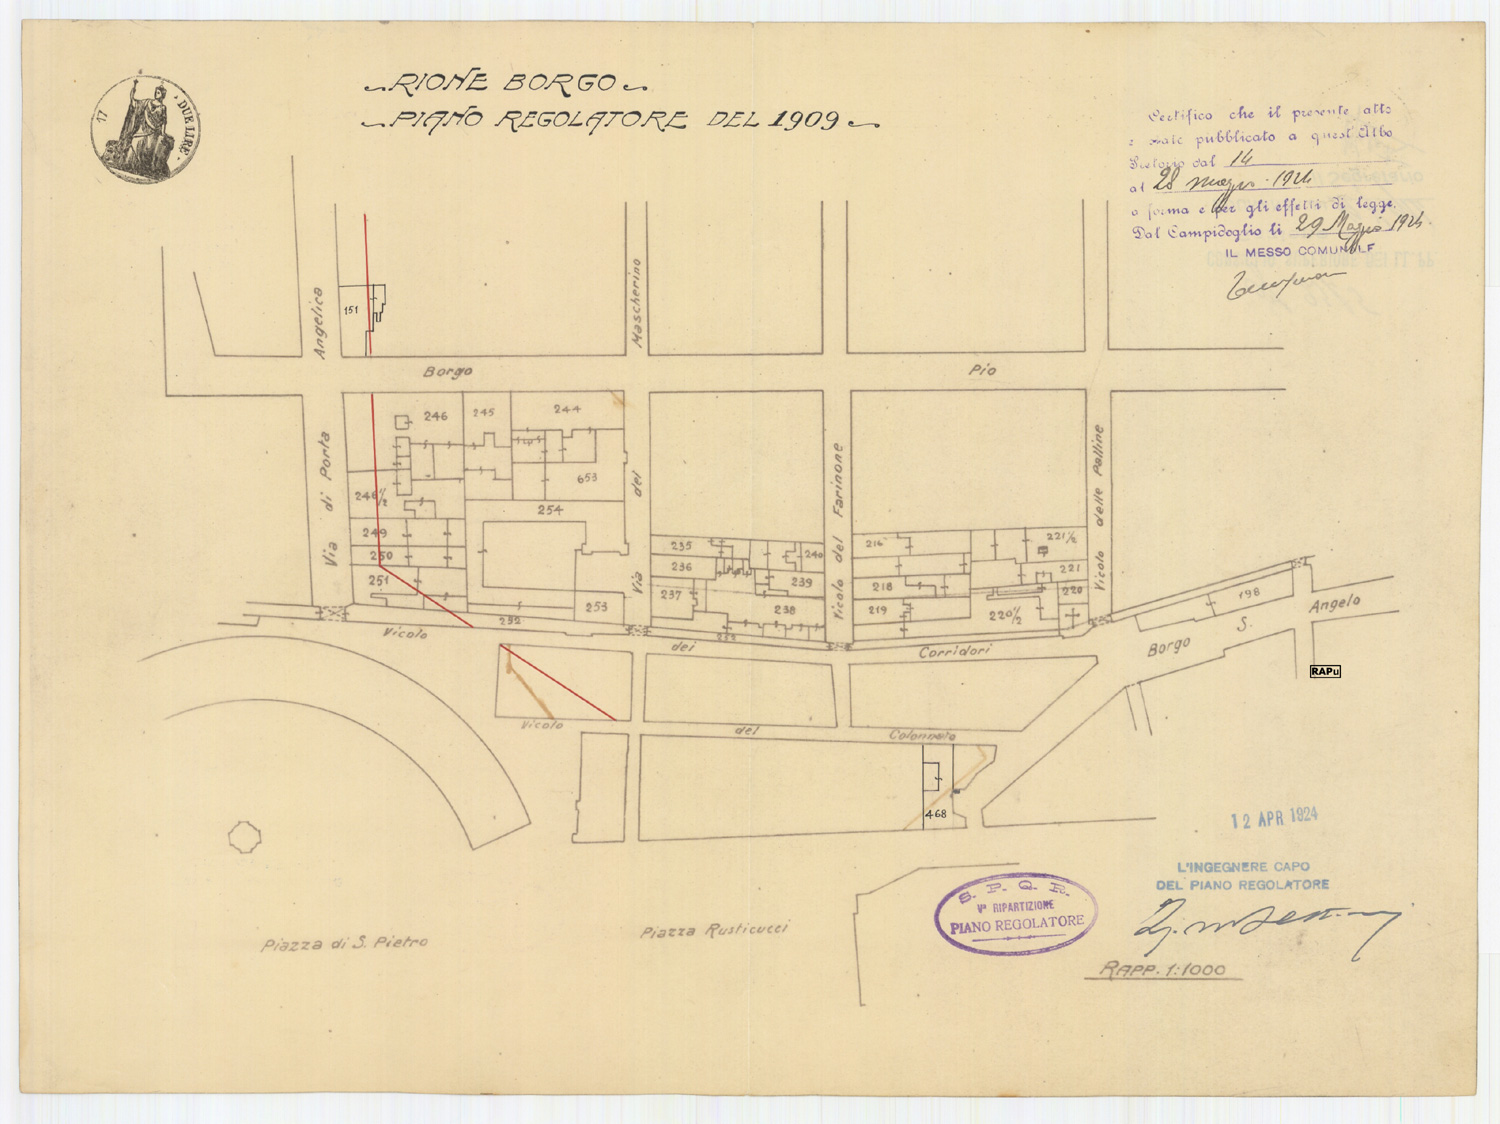 RIONE BORGO
PIANO REGOLATORE DEL 1909
17 · DUE LIRE ·
Certifico che il presente atto
pubblicato a quest'Albo
Pretorio dal 14
al 28 maggio 1924
a forma e per gli effetti di legge.
Dal Campidoglio li 29 Maggio 1924
IL MESSO COMUNALE
Via di Porta Angelica
151
Via dei Mascherino
Borgo Pio
246
245
244
246 1/2
653
254
249
250
251
252
253
235
236
237
240
239
238
Vicolo del Farinone
216
218
219
221 1/2
221
220
220 1/2
Vicolo delle Palline
198
Borgo S. Angelo
Vicolo dei Corridori
RAPu
Vicolo del Colonnato
468
12 APR 1924
L'INGEGNERE CAPO
DEL PIANO REGOLATORE
S. P. Q. R.
Vª RIPARTIZIONE
PIANO REGOLATORE
Piazza di S. Pietro
Piazza Rusticucci
RAPP. 1:1000